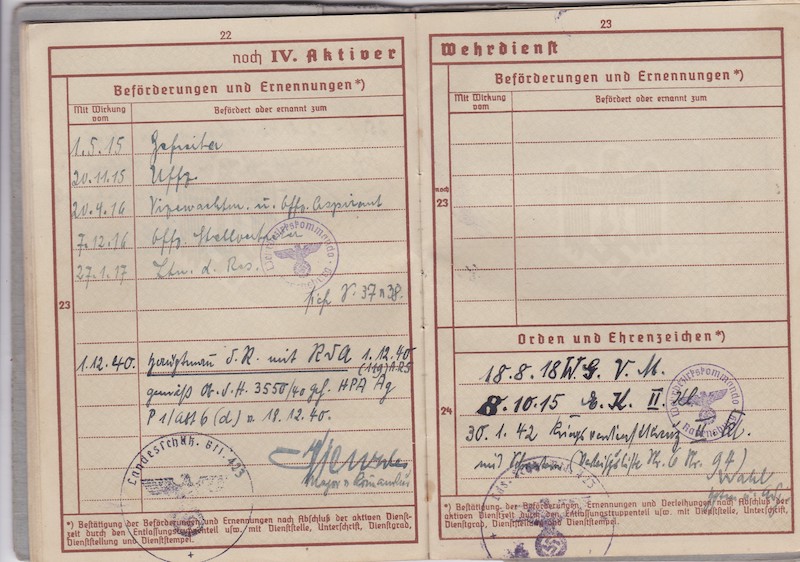 22
noch IV. Aktiver
Beförderungen und Ernennungen*)
Mit Wirkung vom
Befördert oder ernannt zum
1.5.15 Gefreiter
20.11.15 Uffz.
20.4.16 Vizewachtm. u. Offz. Aspirant
7.12.16 Offz. Stellvertreter
27.1.17 Ltn. d. Res.
23
1.12.40. Hauptmann d. R. mit RDA 1.12.40
gemäß Ob. d. H. 3550/40 HPA Ag
P 1/ 6 (d) v. 18.12.40.
Major u. Komandeur
Landesschütz. Btl. 473
*) Bestätigung der Beförderungen und Ernennungen nach Abschluß der aktiven Dienst-
zeit durch den Entlassungstruppenteil usw. mit Dienststelle, Unterschrift, Dienstgrad,
Dienststellung und Dienststempel.
23
Wehrdienst
Beförderungen und Ernennungen*)
Mit Wirkung vom
Befördert oder ernannt zum
noch
23
Orden und Ehrenzeichen*)
18.8.18 W.G.V.M.
8.10.15 E.K. II. Kl.
24
30.1.42 Kriegsverdienstkreuz II. Kl.
mit Schwertern (Verleihgsliste Nr. 6 Nr. 94)
Wahl
*) Bestätigung der Beförderungen, Ernennungen und Verleihungen nach Abschluß der
aktiven Dienstzeit durch den Entlassungstruppenteil usw. mit Dienststelle, Unterschrift,
Dienstgrad, Dienststellung und Dienststempel.